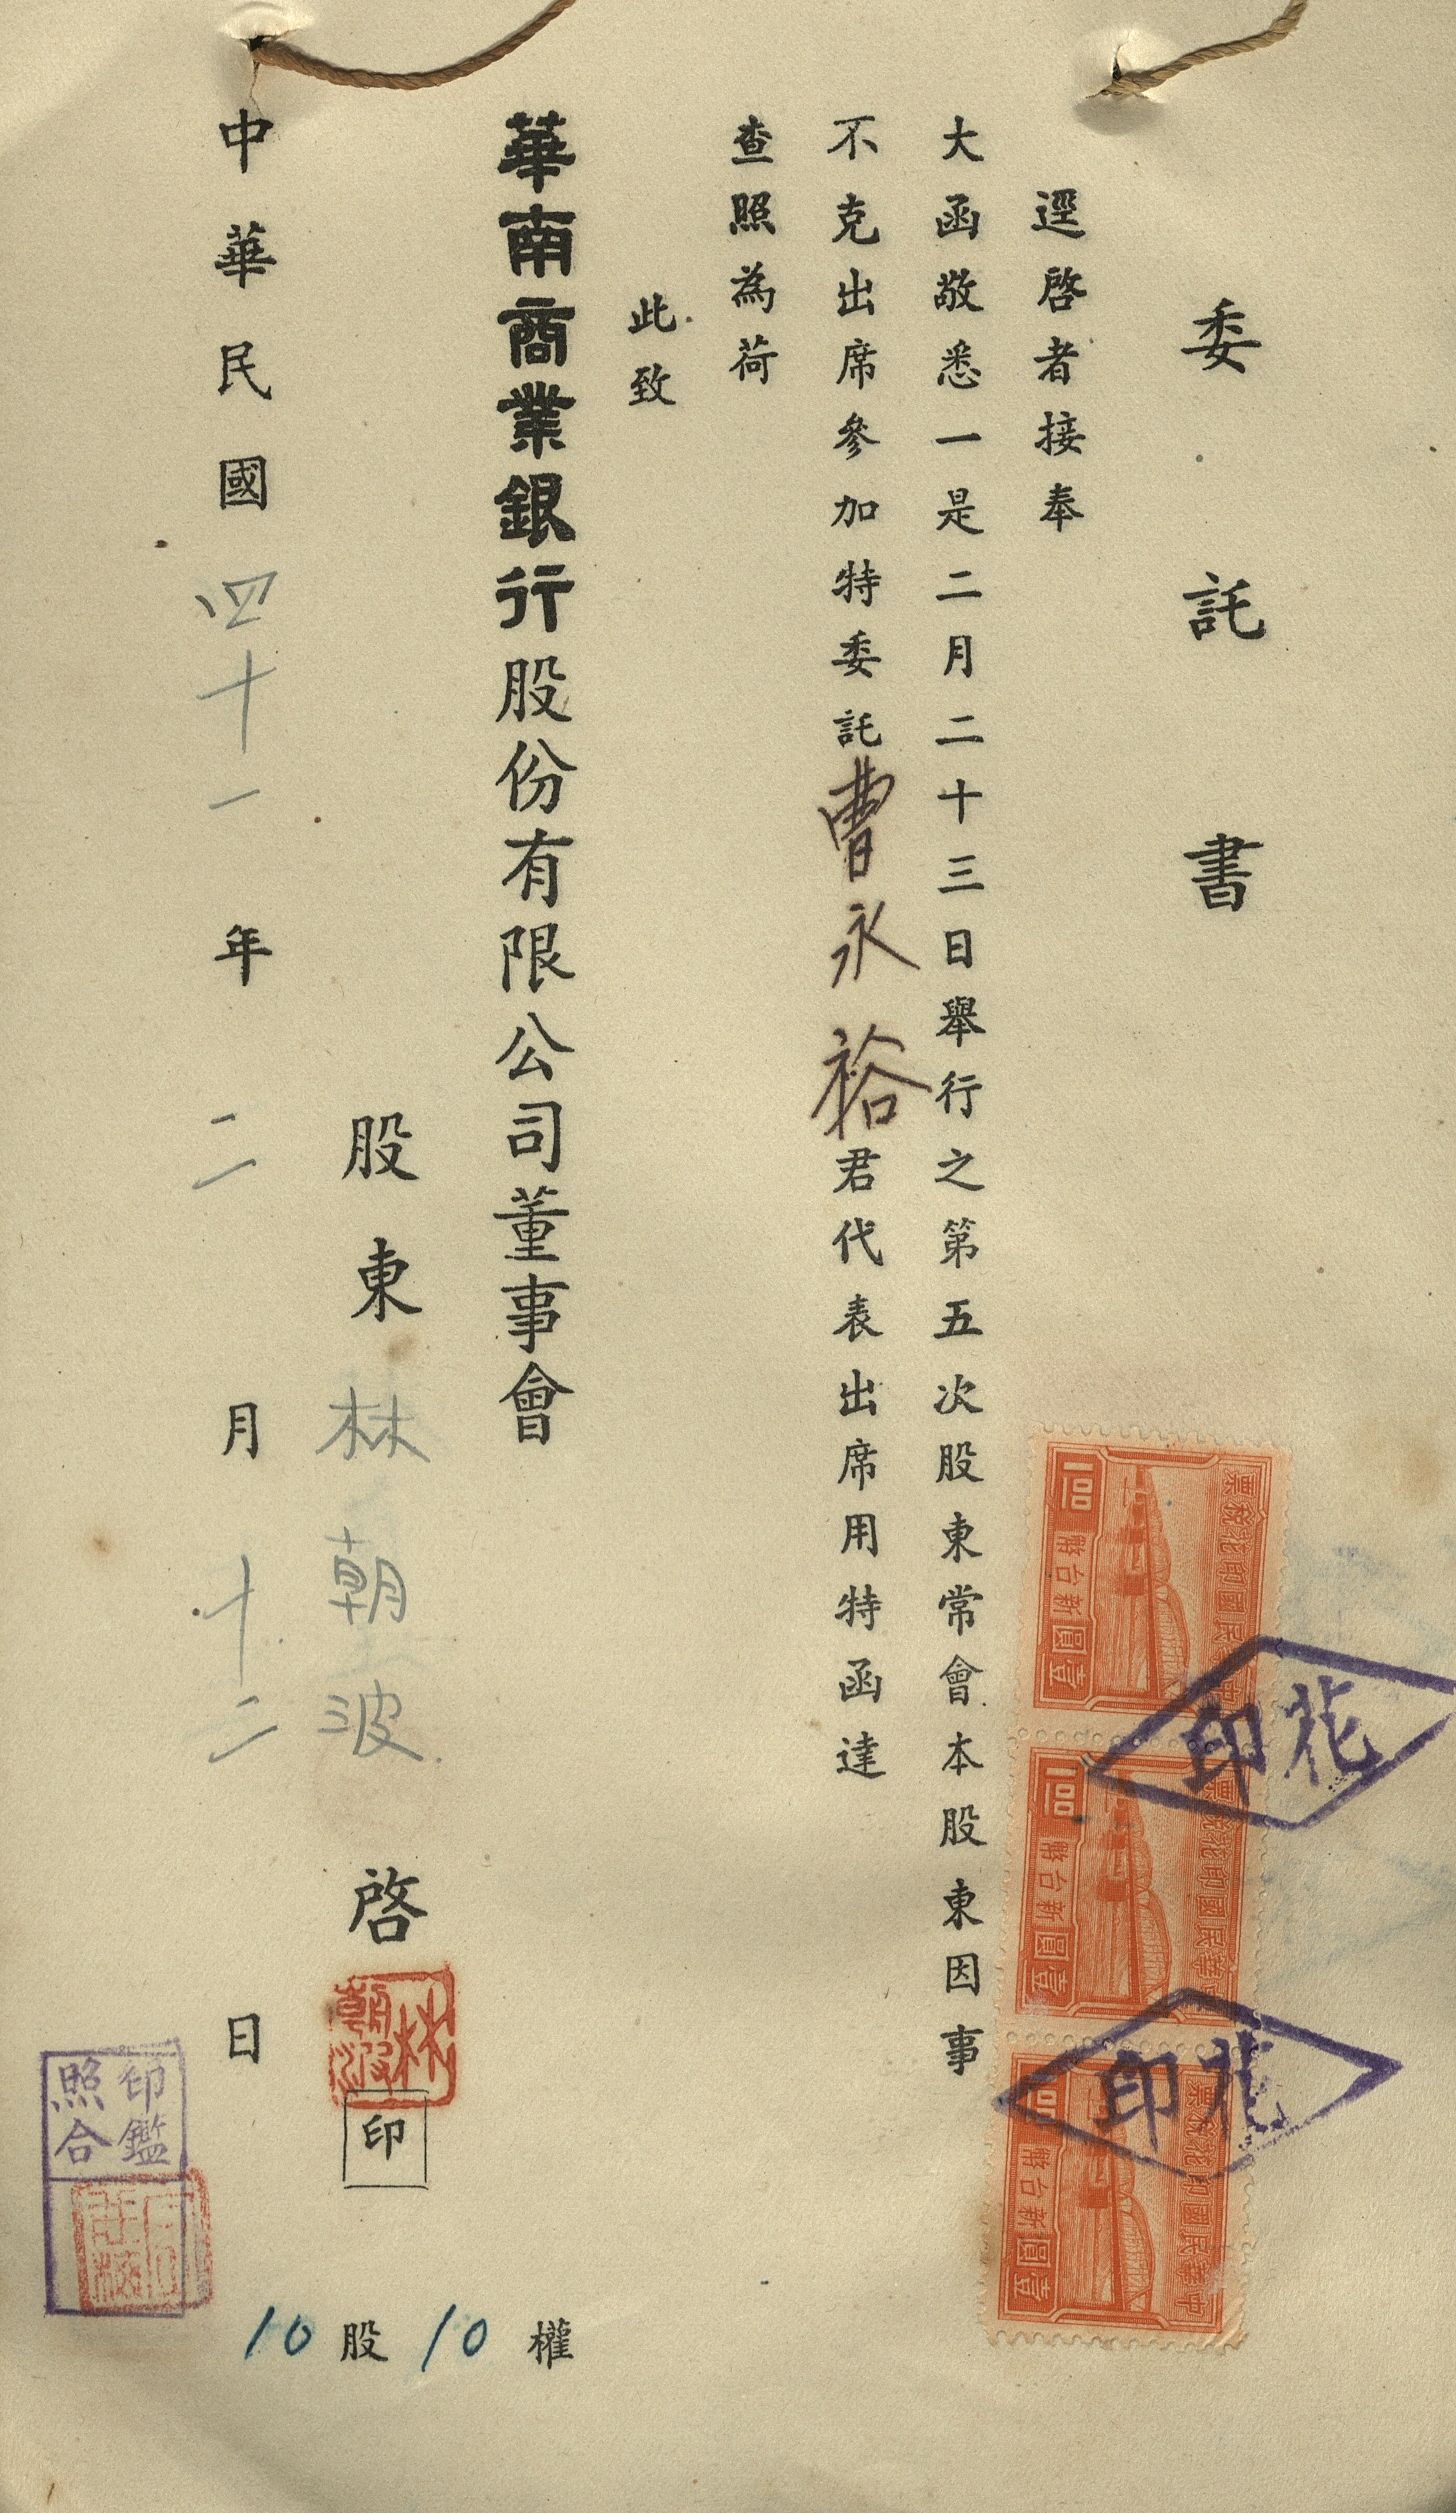 委託書
逕啓者接奉
大函敬悉一是二月二十三日舉行之第五次股東常會本股東因事
不克出席參加特委託曹永裕君代表出席用特函達
查照為荷
此致
華南商業銀行股份有限公司董事會
股東林朝波啓
林朝波
印
中華民國四十一年二月十二日
10股10權
印鑑
照合
中華民國印花稅票
1.00
新台幣
壹圓
中華民國印花稅票
1.00
新台幣
壹圓
中華民國印花稅票
1.00
新台幣
壹圓
印花
印花